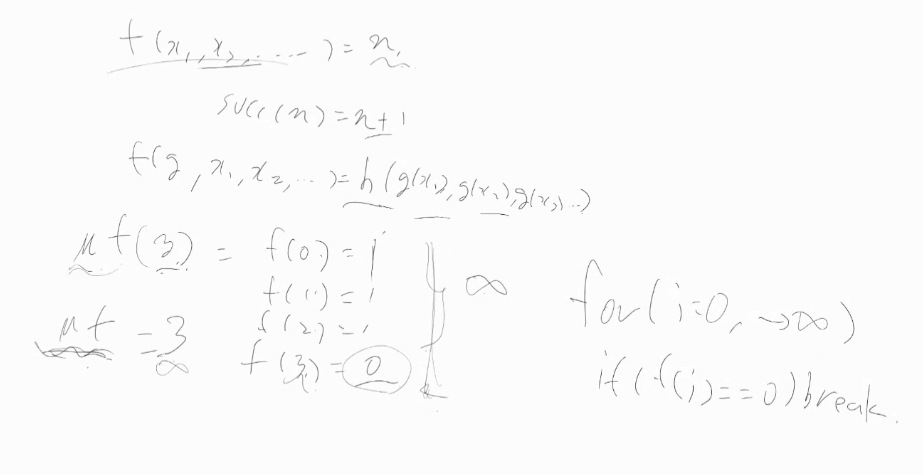 f(x₁, x₂, ....) = xᵢ
succ(n) = n+1
f(g, x₁, x₂, ...) = h(g(x₁), g(x₂), g(x₃)...)
μf(3) = f(0) = 1
f(1) = 1
f(2) = 1
f(3) = 0
∞
μf = 3
∞
for(i=0, →∞)
if(f(i)==0)break.